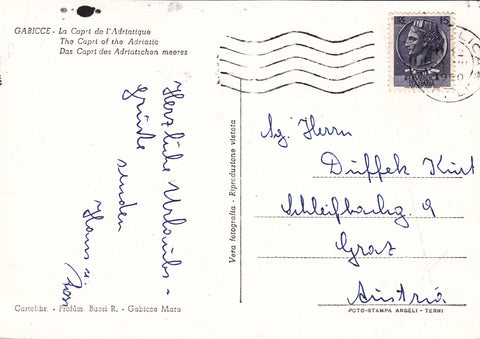 GABICCE - La Capri de l'Adriatique
The Capri of the Adriatic
Das Capri des Adriatschen meeres
15
Herzliche Urlaubs-
grüße senden
Hans u.
Vera fotografia - Riproduzione vietata
Sg. Herrn
Düffek Kurt
Schleifbachg. 9
Graz
Austria
Cartolibr. - Profum. Buosi R. - Gabicce Mare
FOTO-STAMPA ANGELI - TERNI